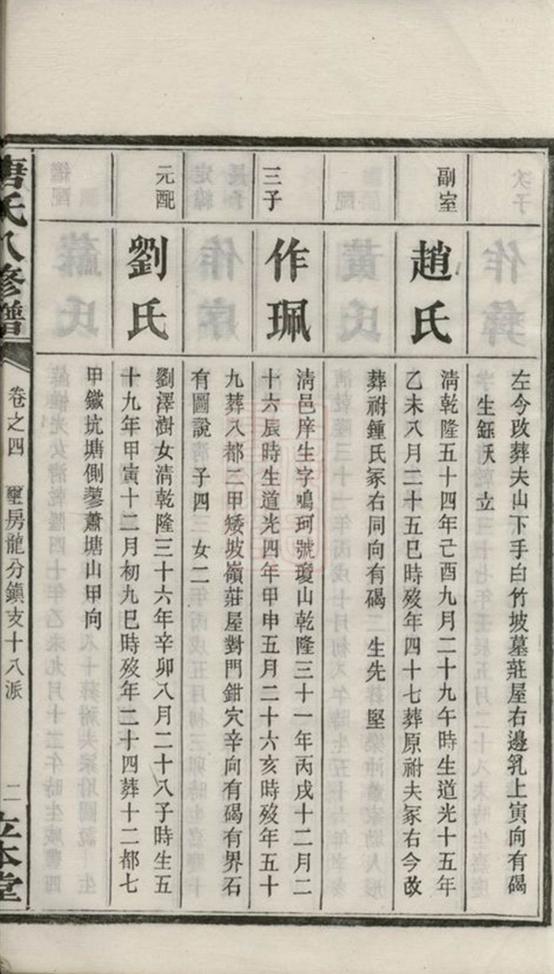 左今改葬夫山下手白竹坡墓莊屋右邊乳上寅向有碣
生鈺殀 立
副室
趙氏
清乾隆五十四年己酉九月二十九午時生道光十五年
乙未八月二十五巳時歿年四十七葬原祔夫冢右今改
葬祔鍾氏冢右同向有碣 生先 堅
三子
作珮
清邑庠生字鳴珂號瓊山乾隆三十一年丙戌十二月二
十六辰時生道光四年甲申五月二十六亥時歿年五十
九葬八都二甲矮坡嶺莊屋對門鉗穴辛向有碣有界石
有圖說 子四 女二
元配
劉氏
劉澤澍女清乾隆三十六年辛卯八月二十八子時生五
十九年甲寅十二月初九巳時歿年二十四葬十二都七
甲鐵坑塘側蓼蕭塘山甲向
唐氏八修譜 卷之四 房龍分鎮支十八派 二 立本堂